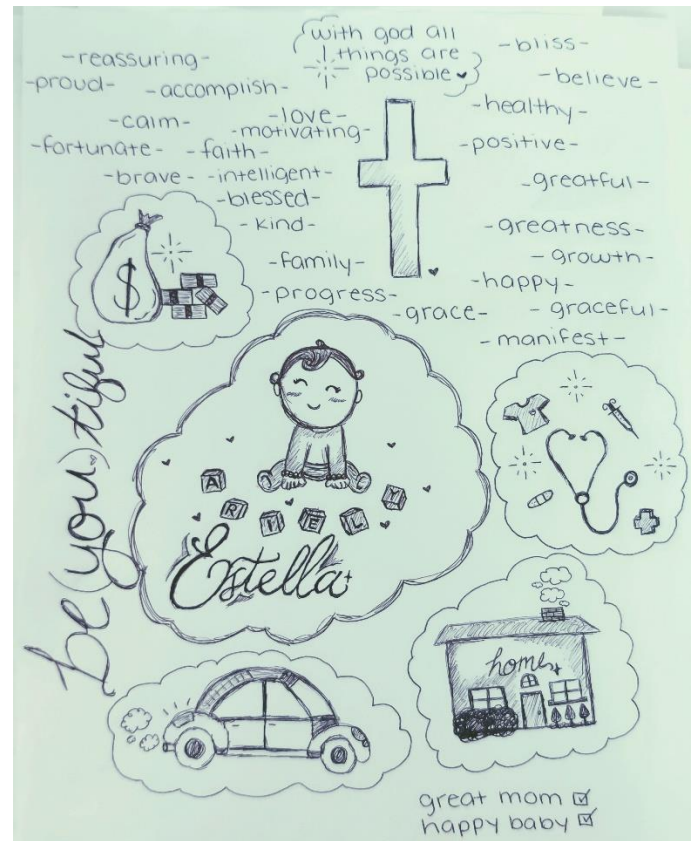 with god all
things are
possible
-reassuring-
-proud-
-accomplish-
-calm-
-love-
-motivating-
-fortunate-
-faith-
-brave-
-intelligent-
-blessed-
-kind-
-family-
-progress-
-grace-
-bliss-
-believe-
-healthy-
-positive-
-greatful-
-greatness-
-growth-
-happy-
-graceful-
-manifest-
$
be(you)tiful
A R I E L Y
Estella
home
great mom ☑
happy baby ☑